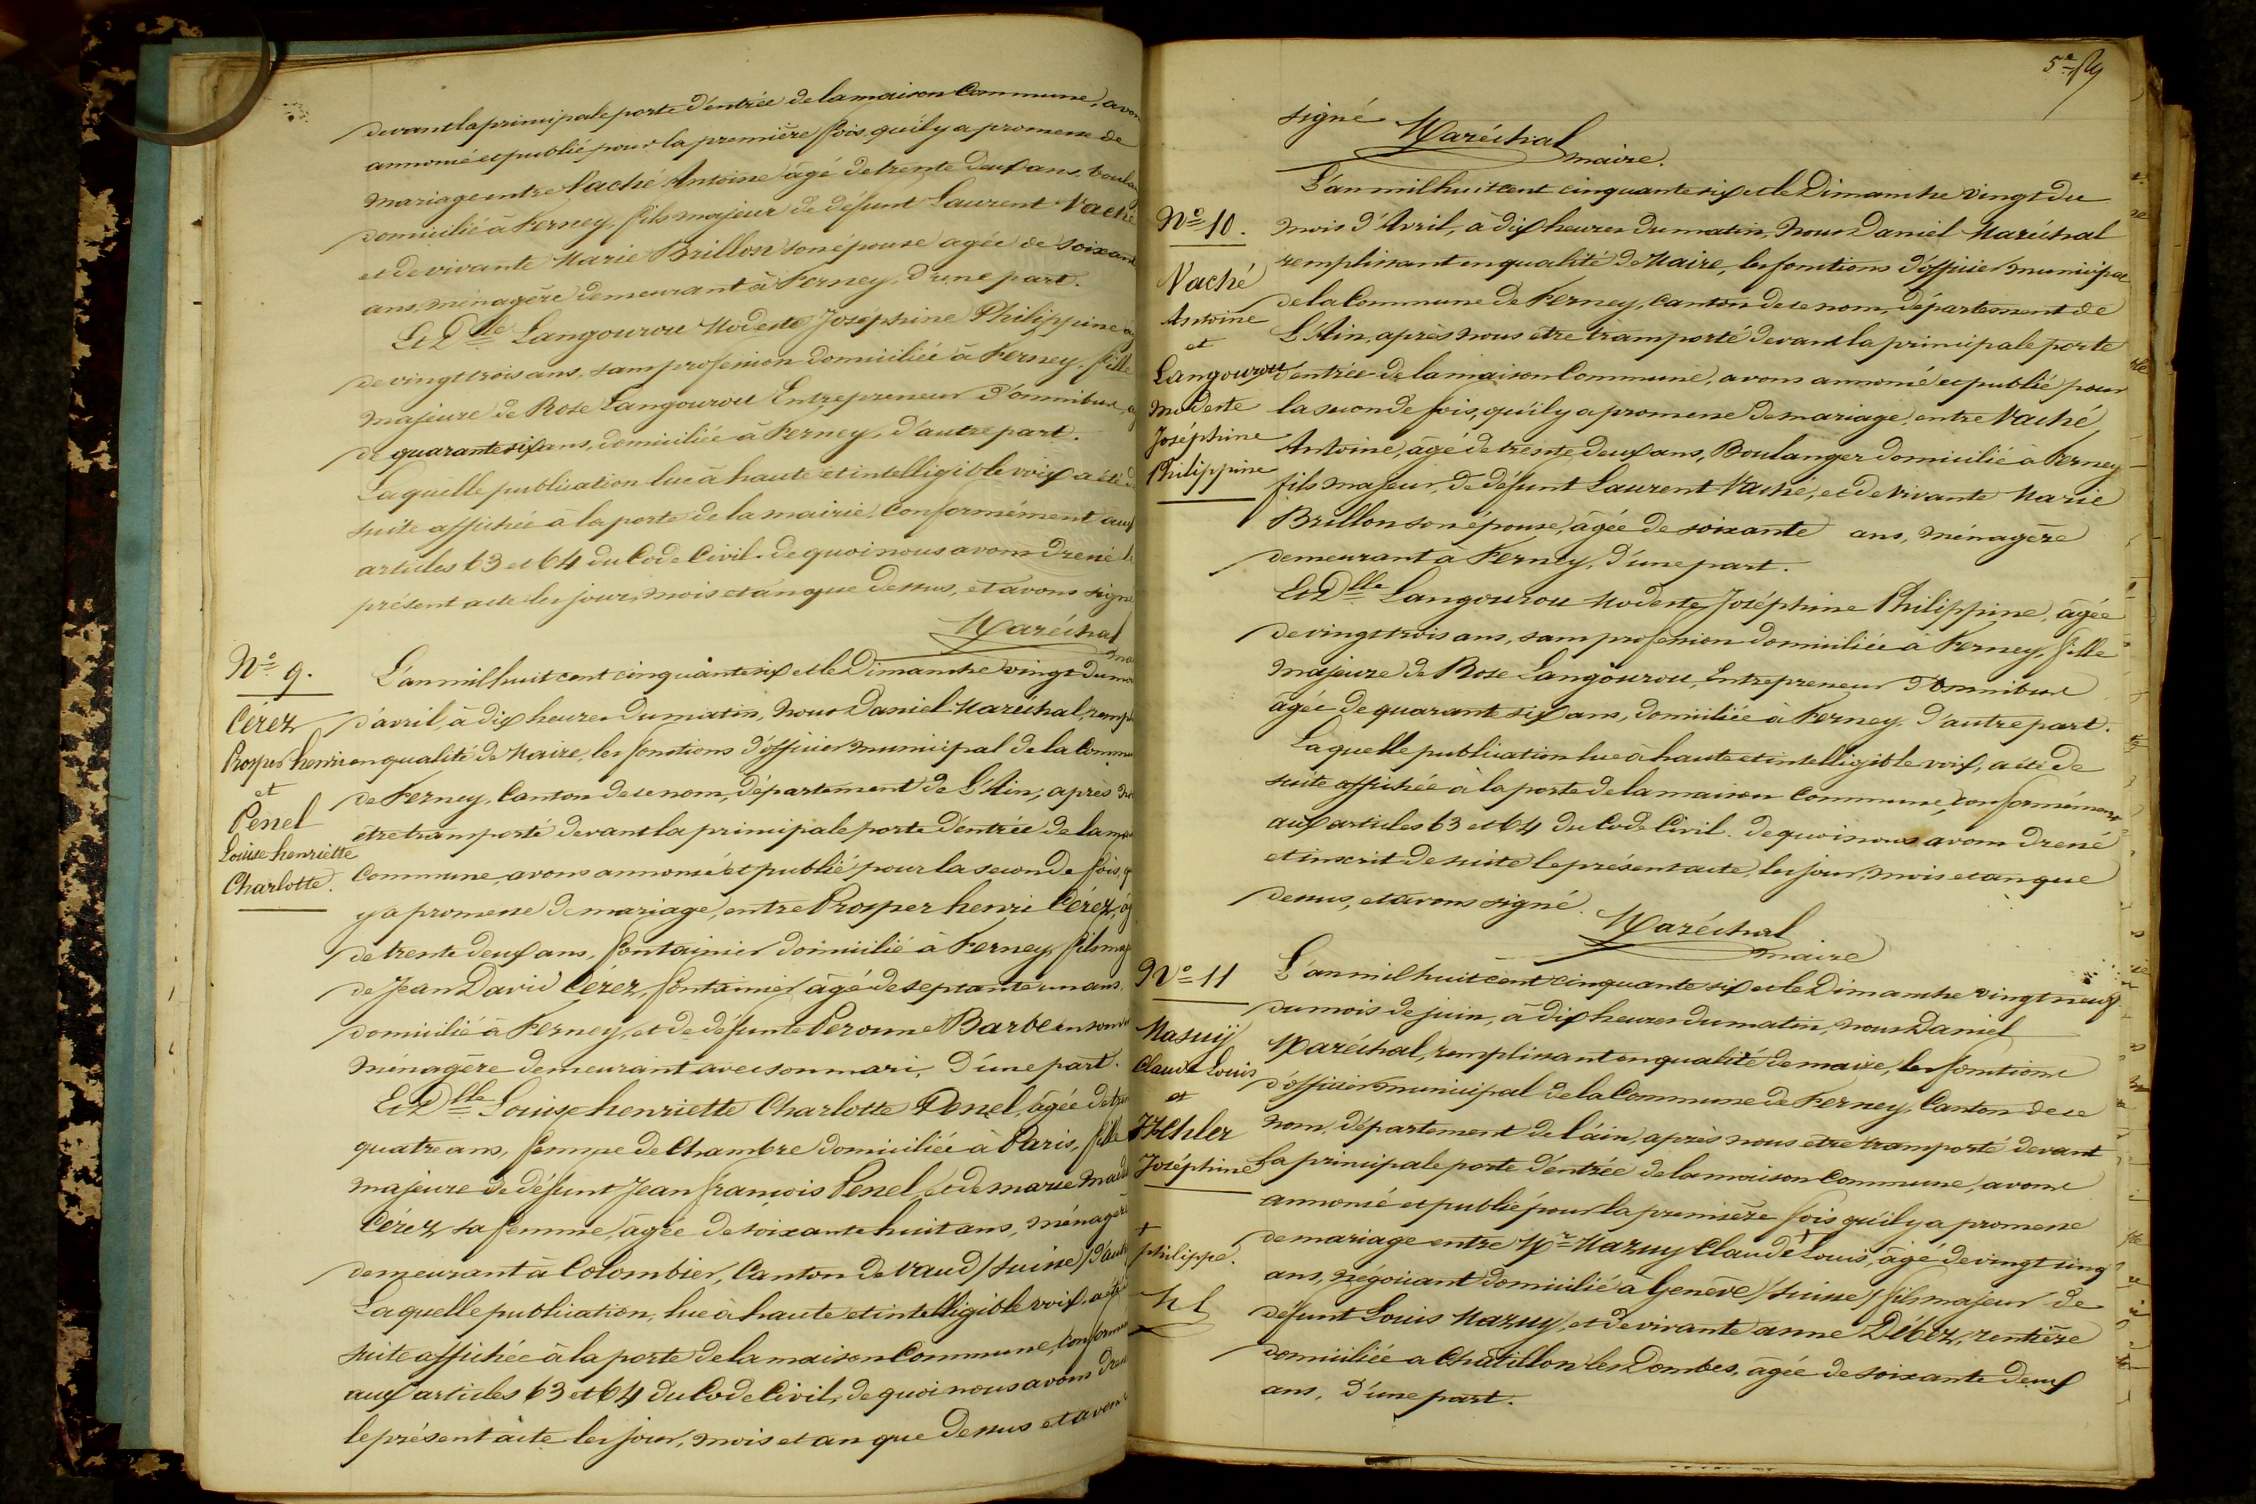 devant la principale porte d'entrée de la maison Commune, avons
annoncé et publié pour la première fois, qu'il y a promesse de
mariage entre Vaché Antoine âgé de trente deux ans,
domicilié à Ferney, fils majeur de défunt Laurent Vaché
et de vivante Marie Brillon son épouse agée de soixante
ans, ménagère demeurant à Ferney, d'une part.
Et Dlle Langourou Modeste Joséphine Philippine
de vingt trois ans, sans profession domiciliée à Ferney, fille
majeure de Rose Langourou Entrepreneur d'omnibus,
de quarante six ans, domiciliée à Ferney, d'autre part.
Laquelle publication lue à haute et intelligible voix a été de
suite affichée à la porte de la mairie, conformément aux
articles 63 et 64 du Code Civil. de quoi nous avons dressé le
présent acte les jour, mois et an que dessus, et avons signé
Maréchal
Nº 9.
Cérez
Prosper henri
et
Penel
Louise henriette
Charlotte.
L'an mil huit cent cinquante six et le Dimanche vingt du mois
d'avril, à dix heures du matin, Nous Daniel Maréchal,
en qualité de Maire, les fonctions d'officier municipal de la Commune
de Ferney, Canton de ce nom, département de L'Ain, après nous
être transporté devant la principale porte d'entrée de la
Commune, avons annoncé et publié pour la seconde fois,
y a promesse de mariage, entre Prosper henri Cérez,
de trente deux ans, fontainier domicilié à Ferney, fils
de Jean David Cérez, fontainier âgé de septante un ans,
domicilié à Ferney, et de défunte Peronne Barbe
ménagère demeurant avec son mari, d'une part.
Et Dlle Louise henriette Charlotte Penel, âgée de
quatre ans, femme de Chambre domiciliée à Paris, fille
majeure de défunt Jean françois Penel, et de marie
Cérez sa femme, âgée de soixante huit ans, ménagère
demeurant à Colombier, Canton de Vaud /suisse/
Laquelle publication, lue à haute et intelligible voix, a été
suite affichée à la porte de la maison Commune,
aux articles 63 et 64 du Code Civil, de quoi nous avons
le présent acte les jour, mois et an que dessus et avons
5e
signé
Maréchal
maire.
Nº 10.
Vaché
Antoine
et
Langourou
Modeste
Joséphine
Philippine
L'an mil huit cent cinquante six et le Dimanche vingt du
mois d'Avril, à dix heures du matin, Nous Daniel Maréchal
remplissant en qualité de Maire, les fonctions d'officier municipal
de la Commune de Ferney, Canton de ce nom, département de
L'Ain, après nous être transporté devant la principale porte
d'entrée de la maison Commune, avons annoncé et publié pour
la seconde fois, qu'il y a promesse de mariage, entre Vaché
Antoine, âgé de trente deux ans, Boulanger domicilié à Ferney
fils majeur, de défunt Laurent Vaché, et de vivante Marie
Brillon son épouse, âgée de soixante ans, ménagère
demeurant à Ferney, d'une part.
Et Dlle Langourou Modeste Joséphine Philippine, âgée
de vingt trois ans, sans profession domiciliée à Ferney, fille
majeure de Rose Langourou, Entrepreneur d'omnibus
âgée de quarante six ans, domiciliée à Ferney d'autre part.
Laquelle publication lue à haute et intelligible voix, a été de
suite affichée à la porte de la maison Commune, conformément
aux articles 63 et 64 du Code Civil. de quoi nous avons dressé
et inscrit de suite le présent acte, les jour, mois et an que
dessus, et avons signé.
Maréchal
maire
Nº 11
Masuÿ
Claude Louis
et
Joséphine
+
philippe.
L'an mil huit cent cinquante six et le Dimanche vingt neuf
du mois de juin, à dix heures du matin, nous Daniel
Maréchal, remplissant en qualité de maire, les fonctions
d'officier municipal de la Commune de Ferney, Canton de ce
nom, département de l'ain, après nous être transporté devant
La principale porte d'entrée de la maison Commune, avons
annoncé et publié pour la première fois qu'il y a promesse
de mariage entre Mr Mazuy Claude + Louis, âgé de vingt cinq
ans, négociant domicilié à Genève /suisse/ fils majeur de
défunt Louis Mazuy, et de vivante anne Débez, rentière
domiciliée a Châtillon les Dombes, âgée de soixante deux
ans, d'une part.